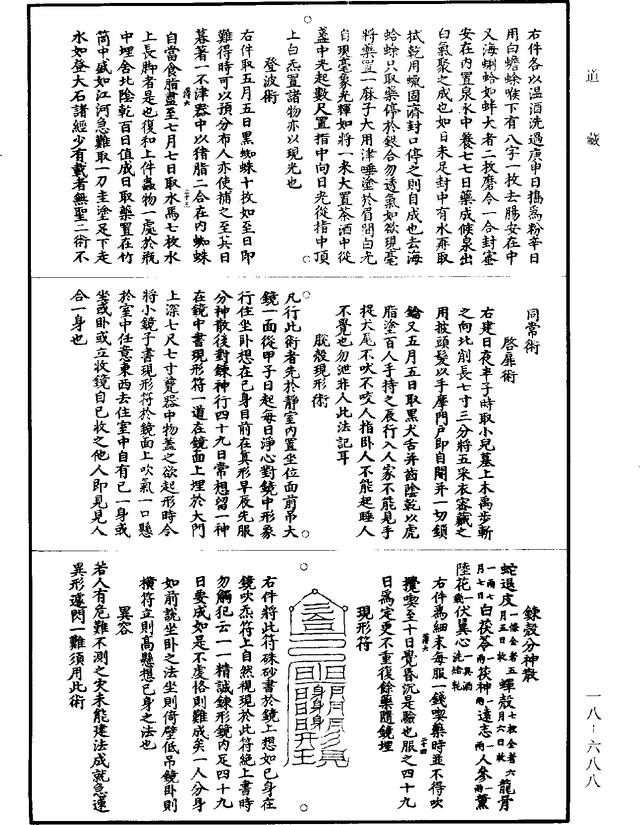 道藏
右件各以温酒洗過庚申日擣爲粉辛日
用白蟾蜍喉下有八字一枚去腸安在中
又海蜊蛤如蚌大者二枚磨令一合封塞
安在內置泉水中養七七日藥成候泉出
白氣聚之成也如日未足封中有水再取
拭乾用蠟固濟封口停之則自成也去海
蛤蜍只取藥停於銀合勿透氣如欲現毫
將藥置一麻子大用津唾塗於眉間白光
自現毫象光輝如將一米大置茶酒中從
盞中光起數尺置指中向日光從指中頂
上白炁置諸物亦以現光也
登波術
右件取五月五日黑蜘蛛十枚如至日即
難得時可以預分布人亦使捕之至其日
募著一不津器中以猪脂二合在内蜘蛛
薄六
二十三
自當食脂盡至七月七日取水馬七枚水
上長脚者是也復和上件蟲物一處於瓶
中埋舍北陰乾百日值成日取藥置在竹
筒中盛如江河急難取一刀圭塗足下走
水如登大石諸經少有載者無聖二術不
同常術
啓扉術
右建日夜半子時取小兒墓上木禹步斬
之向北削長七寸三分將五采衣密藏之
用披頭髮以手摩門戸即自開并一切鎖
鑰又五月五日取黑犬舌并齒陰乾以虎
脂塗百人手持之辰行入人家不能見手
捉犬尾不吠不咬人指卧人不能起睡人
不覺也勿泄非人此法記耳
脱殼現形術
凡行此術者先於静室內置坐位面前吊大
鏡一面從甲子日起每日淨心對鏡中形象
行住坐卧想在已身目前在真形早辰先服
分神散後對鍊神行四十九日常想留一神
在鏡中書現形符一道在鏡面上埋於大門
上深七尺七寸瓷器中物蓋之欲起形時令
將小鏡子書現形符於鏡面上吹氣一口懸
於室中任意東西去住室中自有已一身或
坐或卧或立收鏡自已收之他人即見見人
合一身也
鍊殼分神散
蛇退皮一條全者五月五日收 蟬殼七枚全者六月六日收 龍骨
一兩七月七日 白茯苓一兩 茯神一兩 遠志一兩 人參一兩
陸花 伏翼心
右件爲細末每服一錢喫藥時並不得吹
薄六
二十四
攪喫至十日覺昏沉是驗也服之四十九
日爲定更不重復餘藥隨鏡埋
現形符
右件將此符硃砂書於鏡上想如已身在
鏡吹炁符上自然覩現於此符絕上書時
勿觸犯云一一精誠鍊形鏡内足四十九
日要成如是不虔恪則難成矣一人分身
如前說坐卧之法坐則倚壁低吊鏡卧則
橫符立則高懸想已身之法也
異容
若人有危難不測之灾未能建法成就急運
異形遁閃一難須用此術
一八-六八八